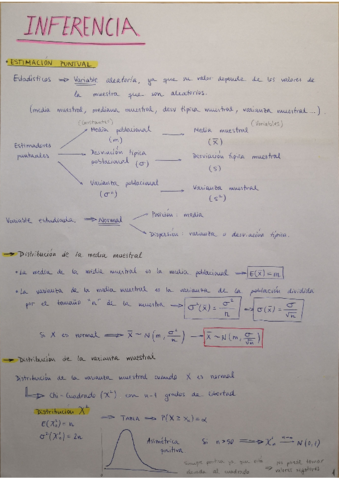 INFERENCIA
• ESTIMACIÓN PUNTUAL
Estadísticos ⟹ Variable aleatoria, ya que su valor depende de los valores de
la muestra que son aleatorios.
(media muestral, mediana muestral, desv típica muestral, varianza muestral...).
(Constantes) (Variables)
Media poblacional (m) → Media muestral (x̄)
Estimadores puntuales → Desviación típica poblacional (σ) → Desviación típica muestral (s)
Varianza poblacional (σ²) → Varianza muestral (s²)
Variable estudiada → Normal
Posición: media
Dispersión: varianza o desviación típica.
→ Distribución de la media muestral
• La media de la media muestral es la media poblacional → E(x̄) = m
• La varianza de la media muestral es la varianza de la población dividida
por el tamaño "n" de la muestra → σ²(x̄) = σ²/n → σ(x̄) = σ/√n
Si X es normal ⟹ x̄ ~ N(m, σ²/n) → x̄ ~ N(m, σ/√n)
→ Distribución de la varianza muestral
Distribución de la varianza muestral cuando X es normal
↳ Chi-Cuadrado (X²) con n-1 grados de libertad.
Distribución X²
→ Tabla → P(X ≥ x) = α
σ²(X²n) = 2n
Asimétrica positiva
N(0,1)